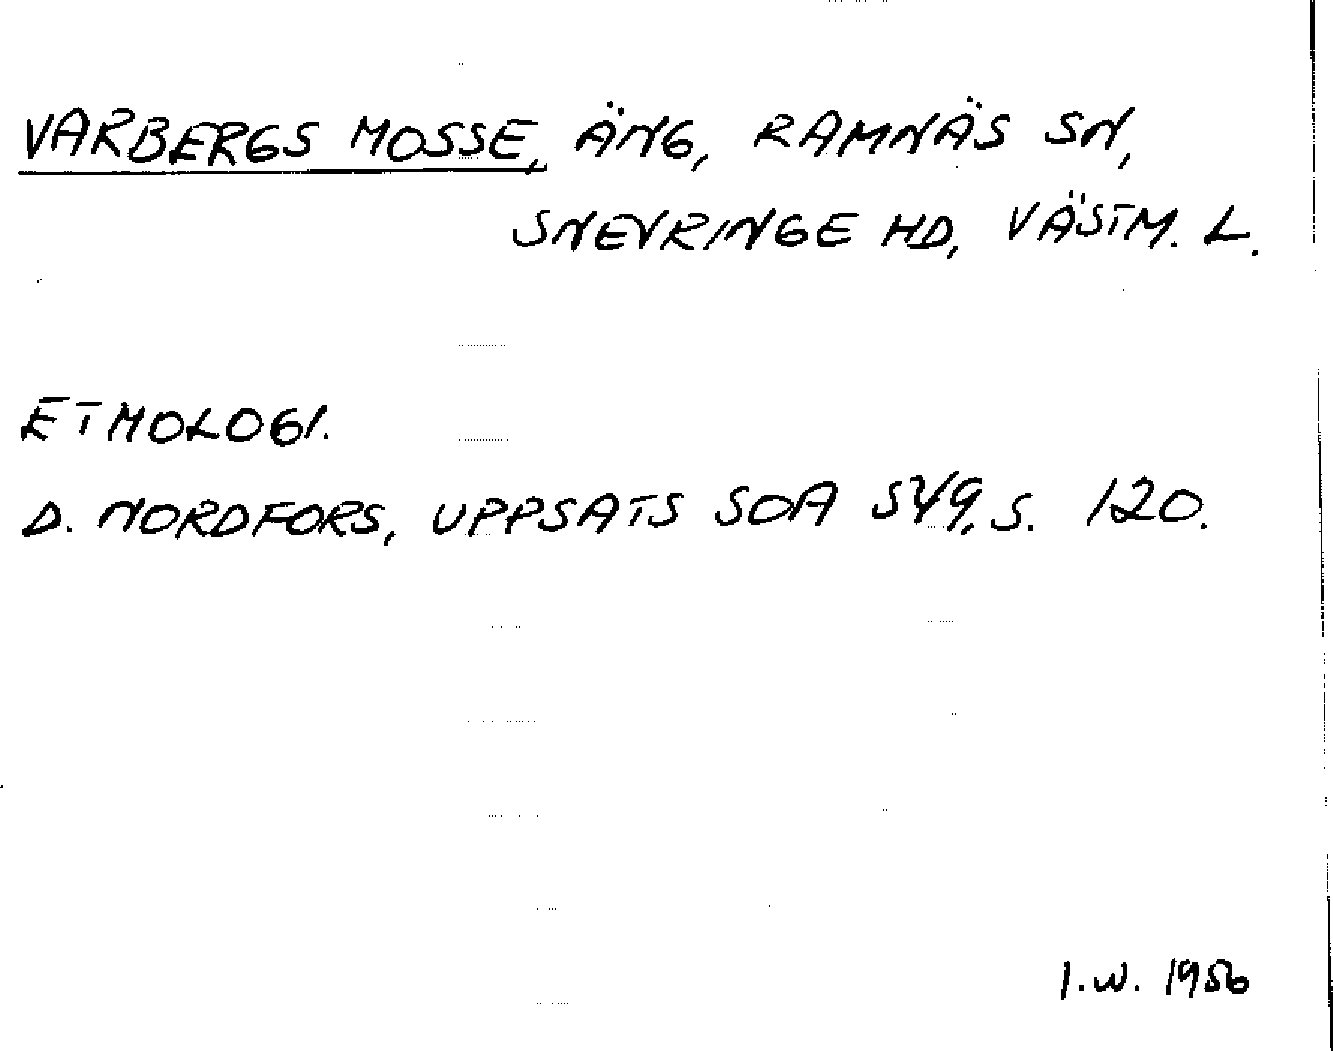 VARBERGS MOSSE, ÄNG, RAMNÄS SN,
SNEVRINGE HD, VÄSTM. L.
ETMOLOGI.
D. NORDFORS, UPPSATS SOA 549, S. 120.
I.W. 1956